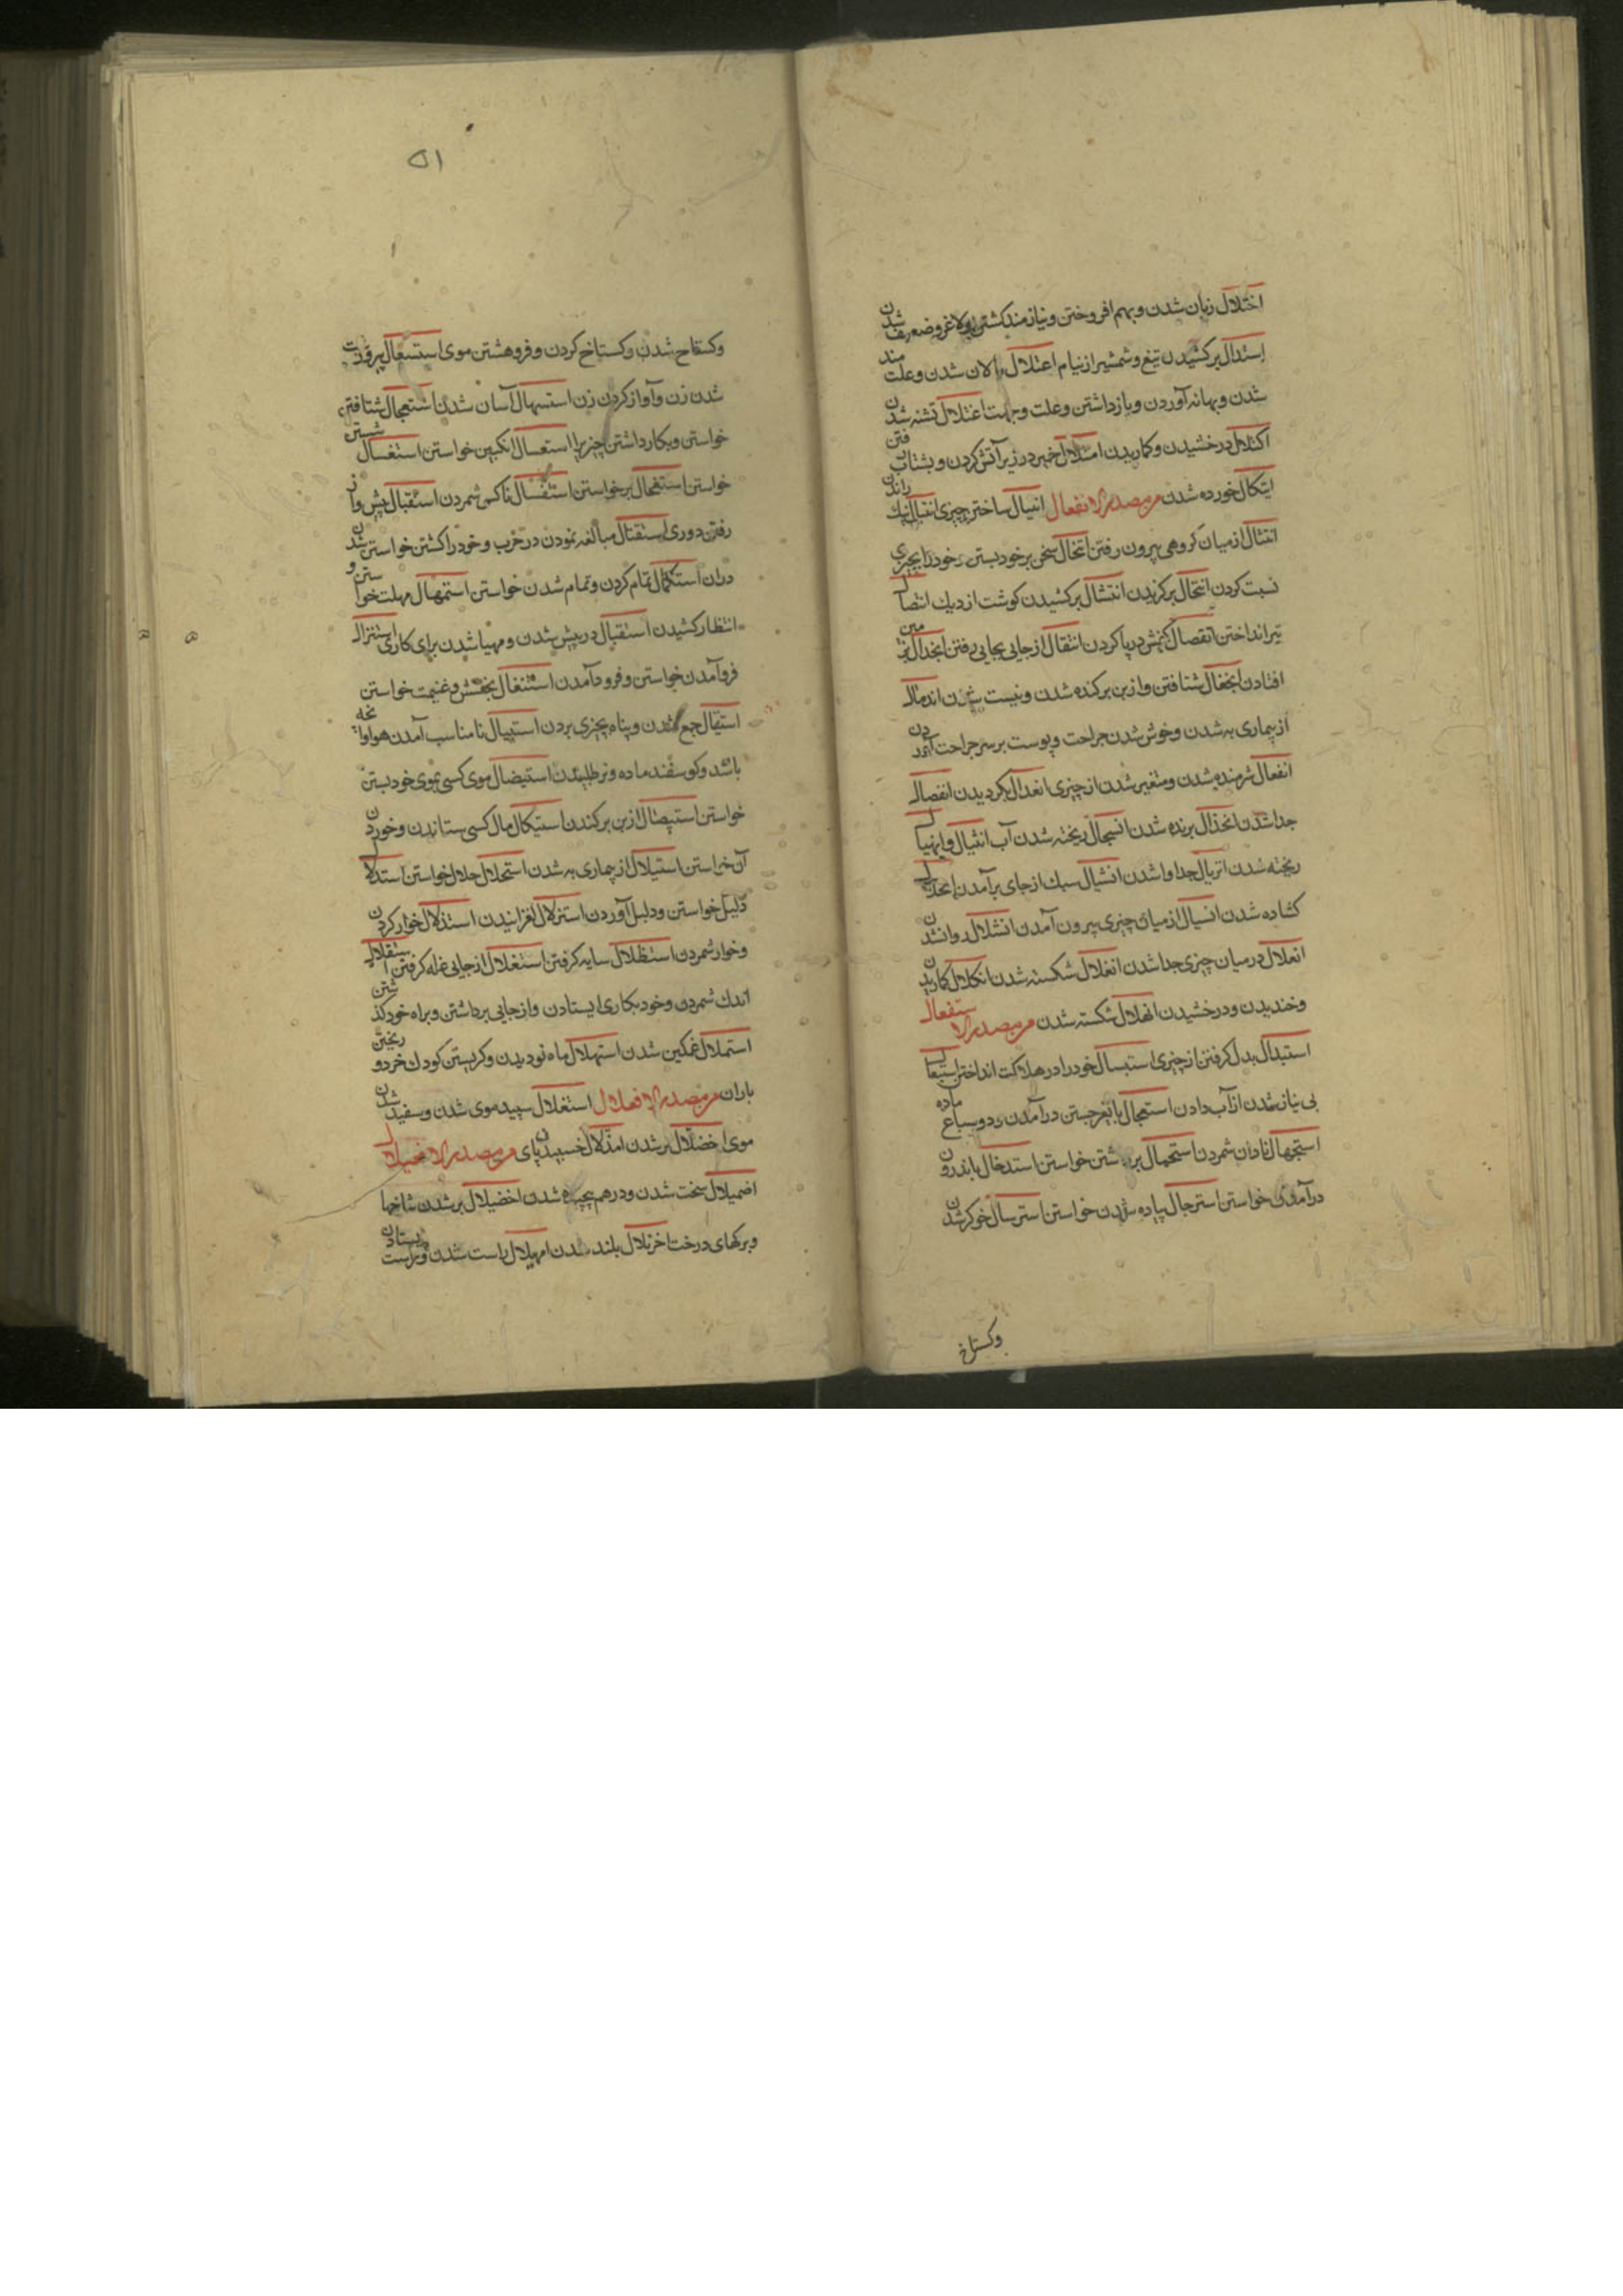 اختلال زیان شدن وبهم افروختن ونیازمند کشتن ولاغر وضعیف شدن
استدلال برکشیدن تیغ وشمشیر از نیام اعتلال نالان شدن وعلت مند
شدن وبهانه آوردن وبازداشتن وعلت وجهت اغتلال تشنه شدن
اکتلال درخشیدن وکاریدن امتلال خمیر در زیر آتش کردن وبشتاب فتن
ایتکال خورده شدن من مصدر الانفعال انتیال ساختن چیزی
انتثال از میان کروهی بیرون رفتن انتحال سخن بر خود بستن خود را بچیزی
نسبت کردن انتخال برکزیدن انتشال برکشیدن کوشت از دیک انتصال
تیر انداختن انتقصال کفش در پا کردن انتقال از جایی بجایی رفتن انجدال بر زمین
افتادن انجفال شتافتن واز بن برکنده شدن ونیست شدن اندمال
از بیماری به شدن وخوش شدن جراحت وپوست بر سر جراحت آوردن
انفعال شرمنده شدن ومتغیر شدن از چیزی انعدال بکردیدن انفصال
جدا شدن انخذال بریده شدن انسجال ریخته شدن آب انثیال وانهیال
ریخته شدن انزیال جدا واشدن انشیال سبک از جای برآمدن انحلال
کشاده شدن انسلال از میان چیزی بیرون آمدن انشلال روان شدن
انغلال در میان چیزی جدا شدن انفلال شکسته شدن انکلال کاریدن
وخندیدن ودرخشیدن انهلال شکسته شدن من مصدر الاستفعال
استبدال بدل کرفتن از چیزی استبسال خود را در هلاکت انداختن استبعال
بی نیاز شدن از آب دادن استعجال در آمدن ماده
استجهال نادان شمردن استحمال برداشتن خواستن استدخال باندرون
درآمدن خواستن استرجال پیاده شدن خواستن استرسال خوکر شدن
وکستاخ
۵۱
وکستاخ شدن وکستاخ کردن وفروهشتن موی استسعال
شدن زن وآواز کردن زن استسهال آسان شدن استعجال شتافتن
خواستن وبکار داشتن چیزیرا استعسال انکبین خواستن استغسال شستن
خواستن استفحال بر خواستن استفسال ناکس شمردن استقبال پیش واز
رفتن دوری استقتال مبالغه نمودن در حرب وخود را کشتن خواستن شدن
دران استکمال تمام کردن وتمام شدن خواستن استمهال مهلت خواستن و
انتظار کشیدن استقبال در پیش شدن ومهیا شدن برای کاری استنزال
فرو آمدن خواستن وفرود آمدن استنفال بخشش وغنیمت خواستن
استیال جمع شدن وپناه بچیزی بردن استیبال نامناسب آمدن هوا وانچه
باشد وکوسفند ماده ونر طلبیدن استیصال موی کسی بموی خود بستن
خواستن استیصال از بن برکندن استیکال مال کسی ستاندن وخوردن
آن خواستن استبلال از بیماری به شدن استحلال حلال خواستن استدلال
دلیل خواستن ودلیل آوردن استزلال لغزانیدن استذلال خوار کردن
وخوار شمردن استظلال سایه کرفتن استغلال از جایی غله کرفتن استقلال
اندک شمردن وخود بکاری ایستادن واز جایی برداشتن وبراه خود کذشتن
استملال غمکین شدن استهلال ماه نو دیدن وکریستن کودک خرد وریختن
باران من مصدر الافعلال استغلال سپید موی شدن وسفید شدن
موی اخضلال تر شدن امذلال خسبیدن پای من مصدر الافعیلال
اضمیلال سخت شدن ودر هم پیچیده شدن اخضیلال تر شدن شاخها
وبرکهای درخت اخزیلال بلند شدن امهیلال راست شدن وراست ایستادن